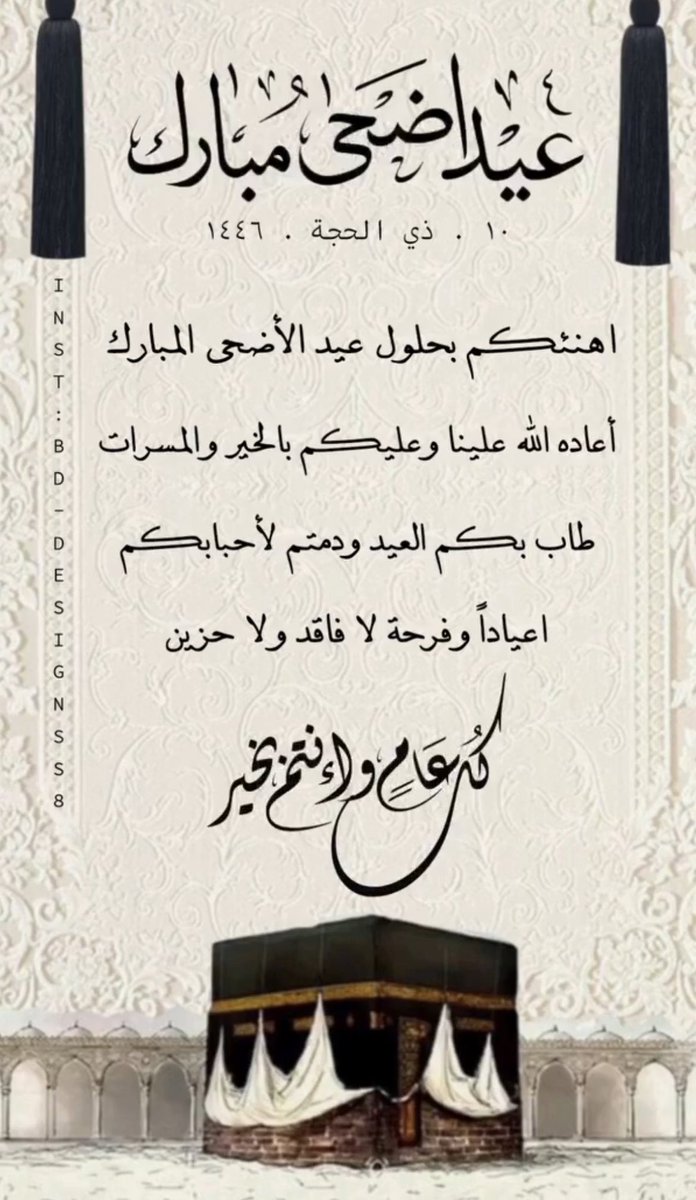 عيد اضحى مبارك
١٠ . ذي الحجة . ١٤٤٦
اهنئكم بحلول عيد الأضحى المبارك
أعاده الله علينا وعليكم بالخير والمسرات
طاب بكم العيد ودمتم لأحبابكم
اعياداً وفرحة لا فاقد ولا حزين
كُل عَامٍ وإنتم بخير
INST:BD-DESIGNSSS8